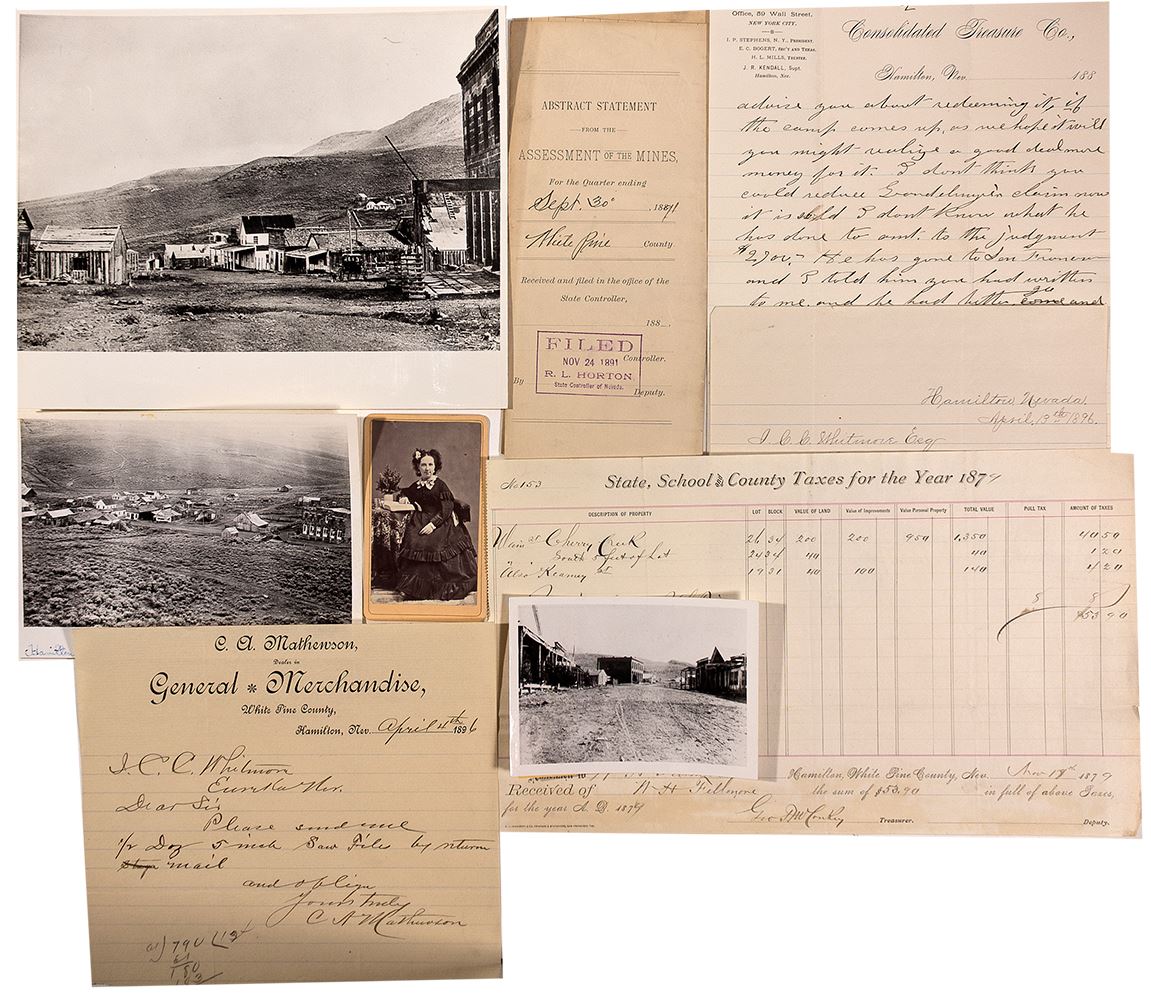 ABSTRACT STATEMENT
—FROM THE—
ASSESSMENT OF THE MINES,
For the Quarter ending
Sept. 30, 1891
White Pine County.
Received and filed in the office of the
State Controller,
188_.
Controller.
By
Deputy.
FILED
NOV 24 1891
R. L. HORTON
State Controller of Nevada.
Office, 59 Wall Street,
NEW YORK CITY.
I. P. STEPHENS, N. Y., PRESIDENT.
E. C. BOGERT, SEC'Y AND TREAS.
H. L. MILLS, TRUSTEE.
J. R. KENDALL, Supt.
Hamilton, Nev.
Consolidated Treasure Co.,
Hamilton, Nev. 188
advise you about redeeming it, if
the camp comes up, as we hope it will
you might realize a good deal more
money for it. I dont think you
could reduce claim now
it is I dont know what he
has done to amt. to the judgment
He has gone to San Francisco
and I told him you had written
to me and he had better go and
Hamilton, Nevada,
April, 13th 1896.
I. C. C. Whitmore Esq
Hamilton
No 153
State, School & County Taxes for the Year 1879
DESCRIPTION OF PROPERTY LOT BLOCK VALUE OF LAND Value of Improvements Value Personal Property TOTAL VALUE POLL TAX AMOUNT OF TAXES
Main St Cherry Creek 26 34 200 200 950 1,350 40 50
South 5 feet of Lot 24 34 40 40 1 20
Also Kearney St 19 31 40 100 140 4 20
8 8
$53 90
Hamilton, White Pine County, Nev. Nov 18th 1879
Received of W H Fillmore the sum of $53.90 in full of above Taxes,
for the year A. D. 1879 Treasurer. Deputy.
C. A. Mathewson,
Dealer in
General * Merchandise,
White Pine County,
Hamilton, Nev. April 4th 1896
I. C. C. Whitmore
Eureka Nev.
Dear Sir
Please send me
1/2 Doz 5 inch Saw Files by return
mail
and oblige
Yours truly
C A Mathewson
61) 790 (13
61
180
183